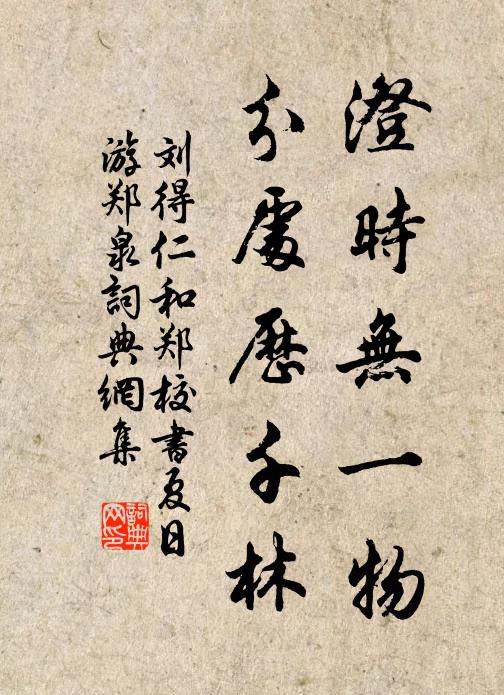 澄時無一物
分處歷千林
刘得仁和郑校書夏日
游郑泉詞典網集
詞典
网印